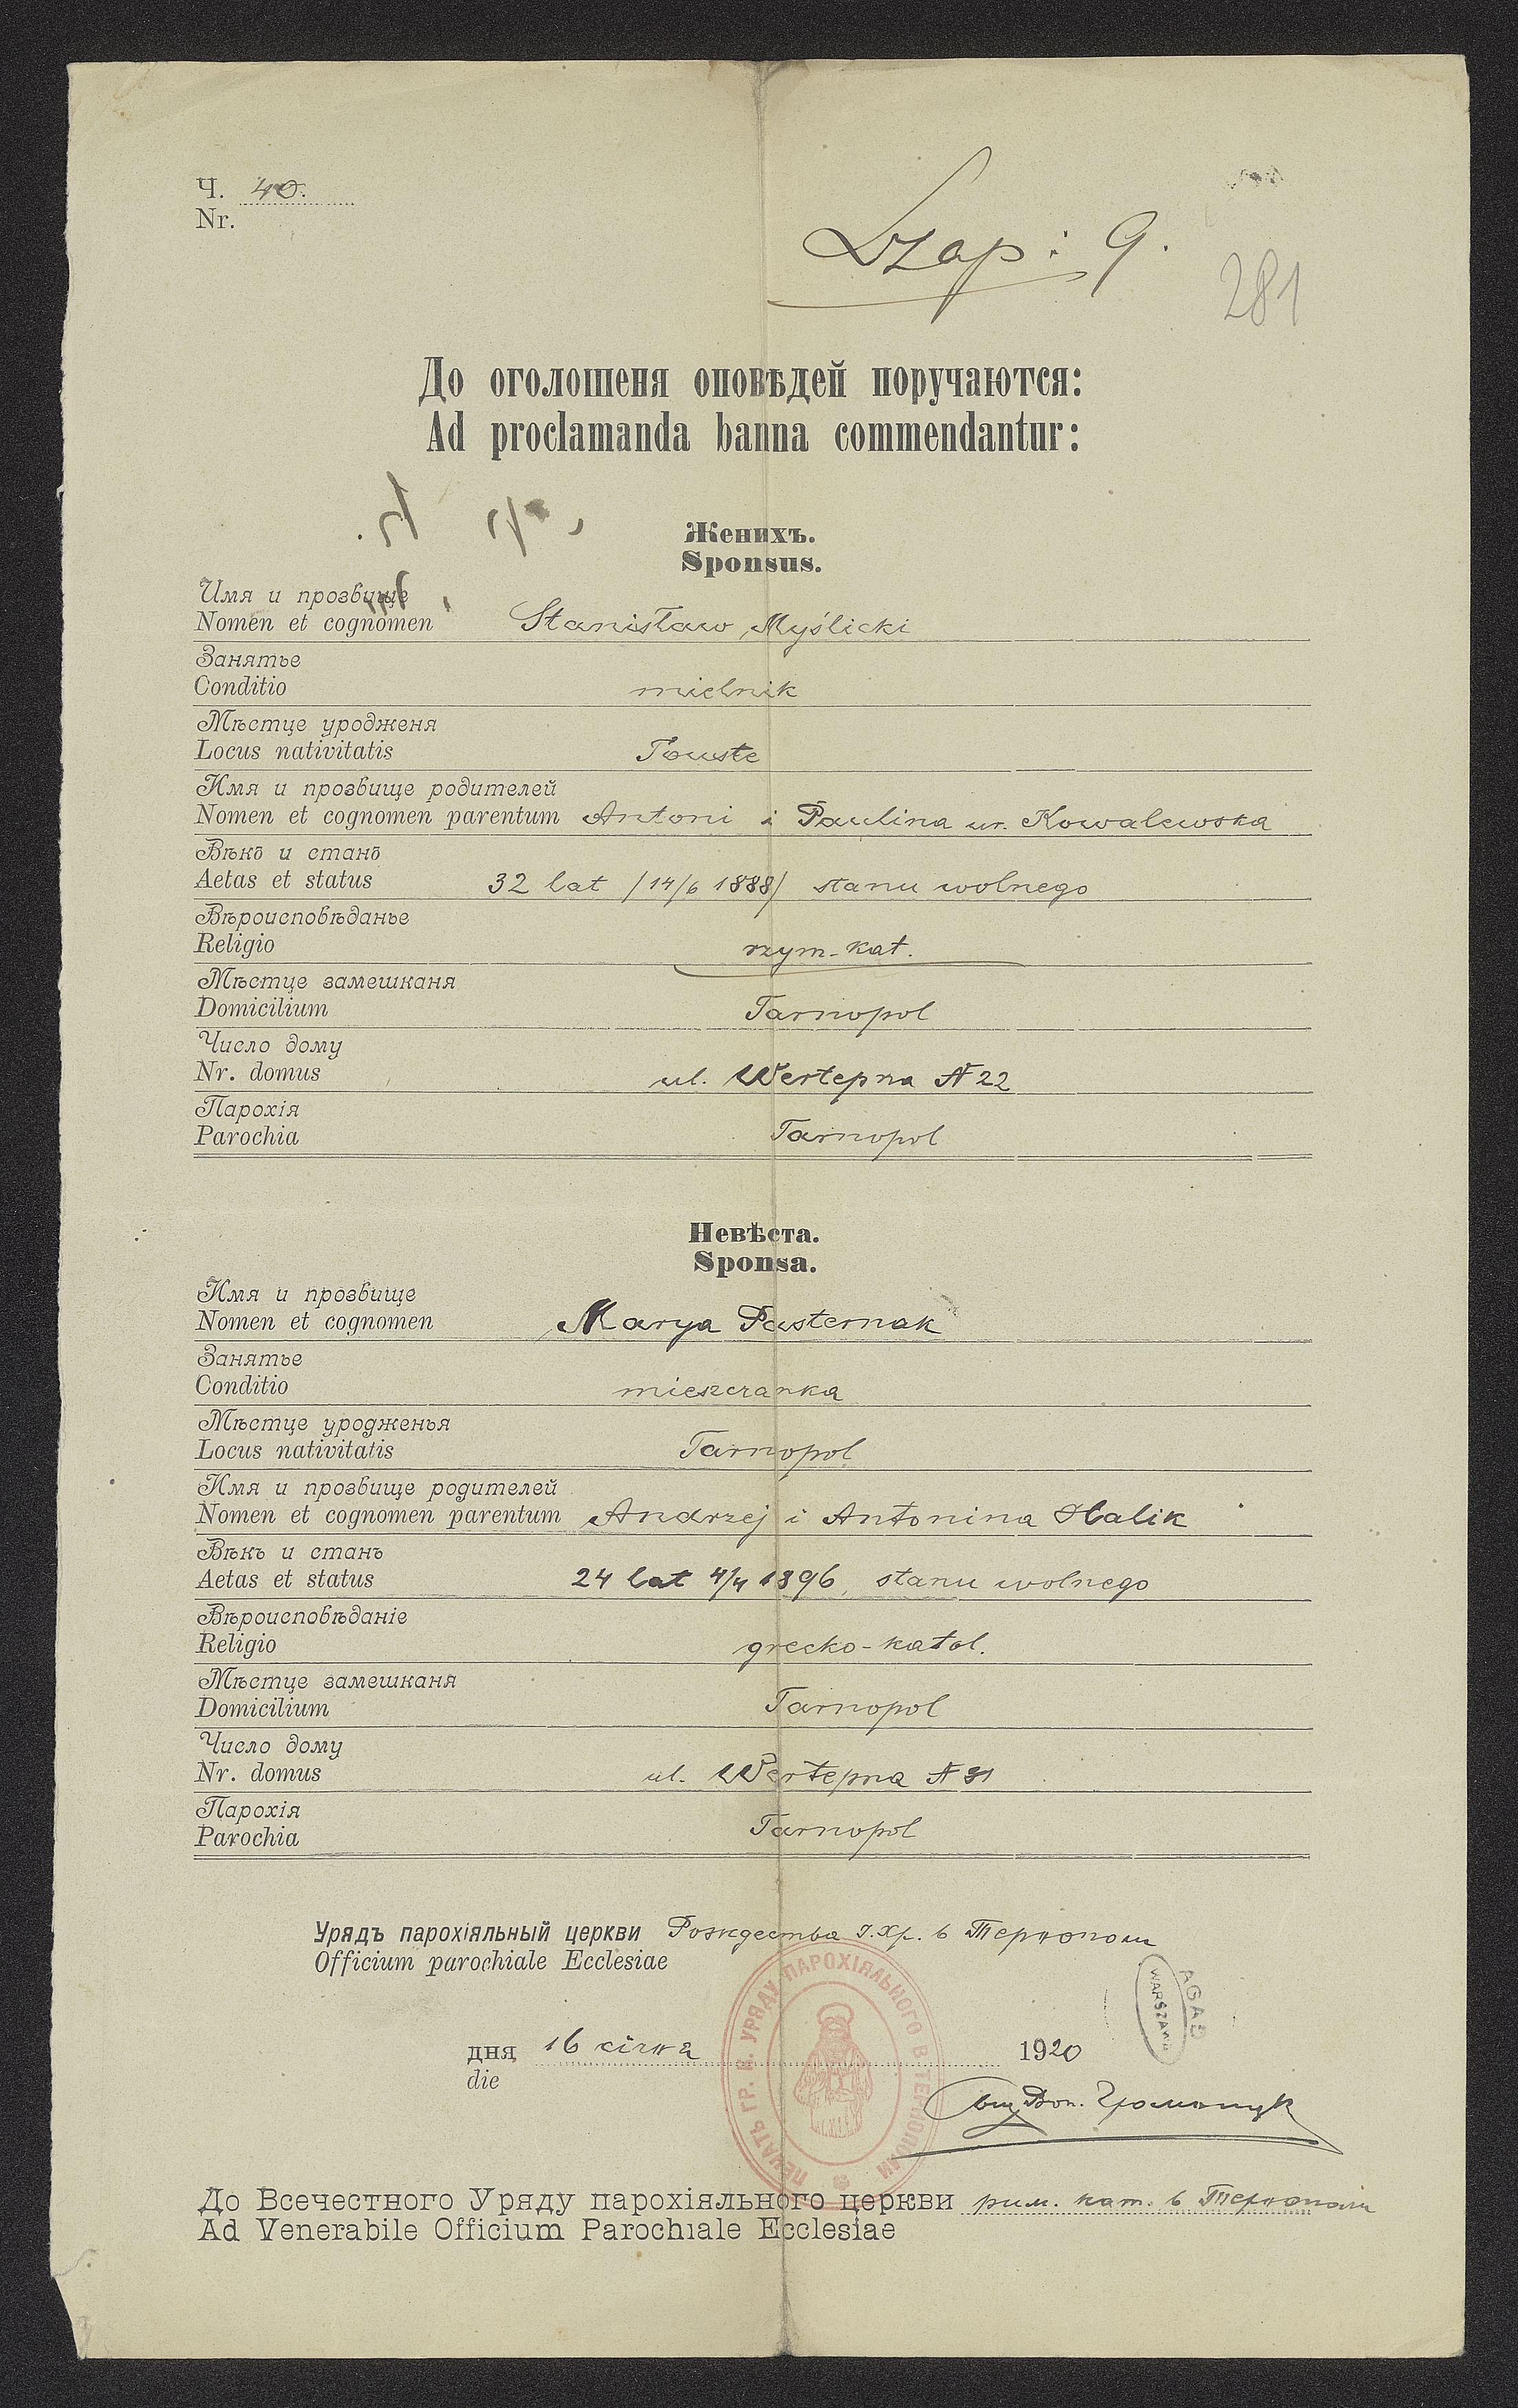 Ч. 40.
Nr.
Lzap: 9.
281
До оголошеня оповѣдей поручаются:
Ad proclamanda banna commendantur:
Женихъ.
Sponsus.
Имя и прозвище
Nomen et cognomen Stanisław Myślicki
Занятье
Conditio mielnik
Мѣстце уродженя
Locus nativitatis Touste
Имя и прозвище родителей
Nomen et cognomen parentum Antoni i Paulina ur. Kowalewska
Вѣкъ и станъ
Aetas et status 32 lat /14/6 1888/ stanu wolnego
Вѣроисповѣданье
Religio rzym-kat.
Мѣстце замешканя
Domicilium Tarnopol
Число дому
Nr. domus ul. Wertepna N 22
Парохія
Parochia Tarnopol
Невѣста.
Sponsa.
Имя и прозвище
Nomen et cognomen Marya Pasternak
Занятье
Conditio mieszczanka
Мѣстце уродженья
Locus nativitatis Tarnopol
Имя и прозвище родителей
Nomen et cognomen parentum Andrzej i Antonina Halik
Вѣкъ и станъ
Aetas et status 24 lat 4/4 1896, stanu wolnego
Вѣроисповѣданіе
Religio grecko-katol.
Мѣстце замешканя
Domicilium Tarnopol
Число дому
Nr. domus ul. Wertepna N 31
Парохія
Parochia Tarnopol
Урядъ парохіяльный церкви Рождества І. Хр. в Тернополи
Officium parochiale Ecclesiae
AGAD
WARSZAWA
ПЕЧАТЬ ГР. К. УРЯДУ ПАРОХІЯЛЬНОГО В ТЕРНОПОЛИ
дня 16 січня 1920
die
Громницк
До Всечестного Уряду парохіяльного церкви рим. кат. в Тернополи
Ad Venerabile Officium Parochiale Ecclesiae